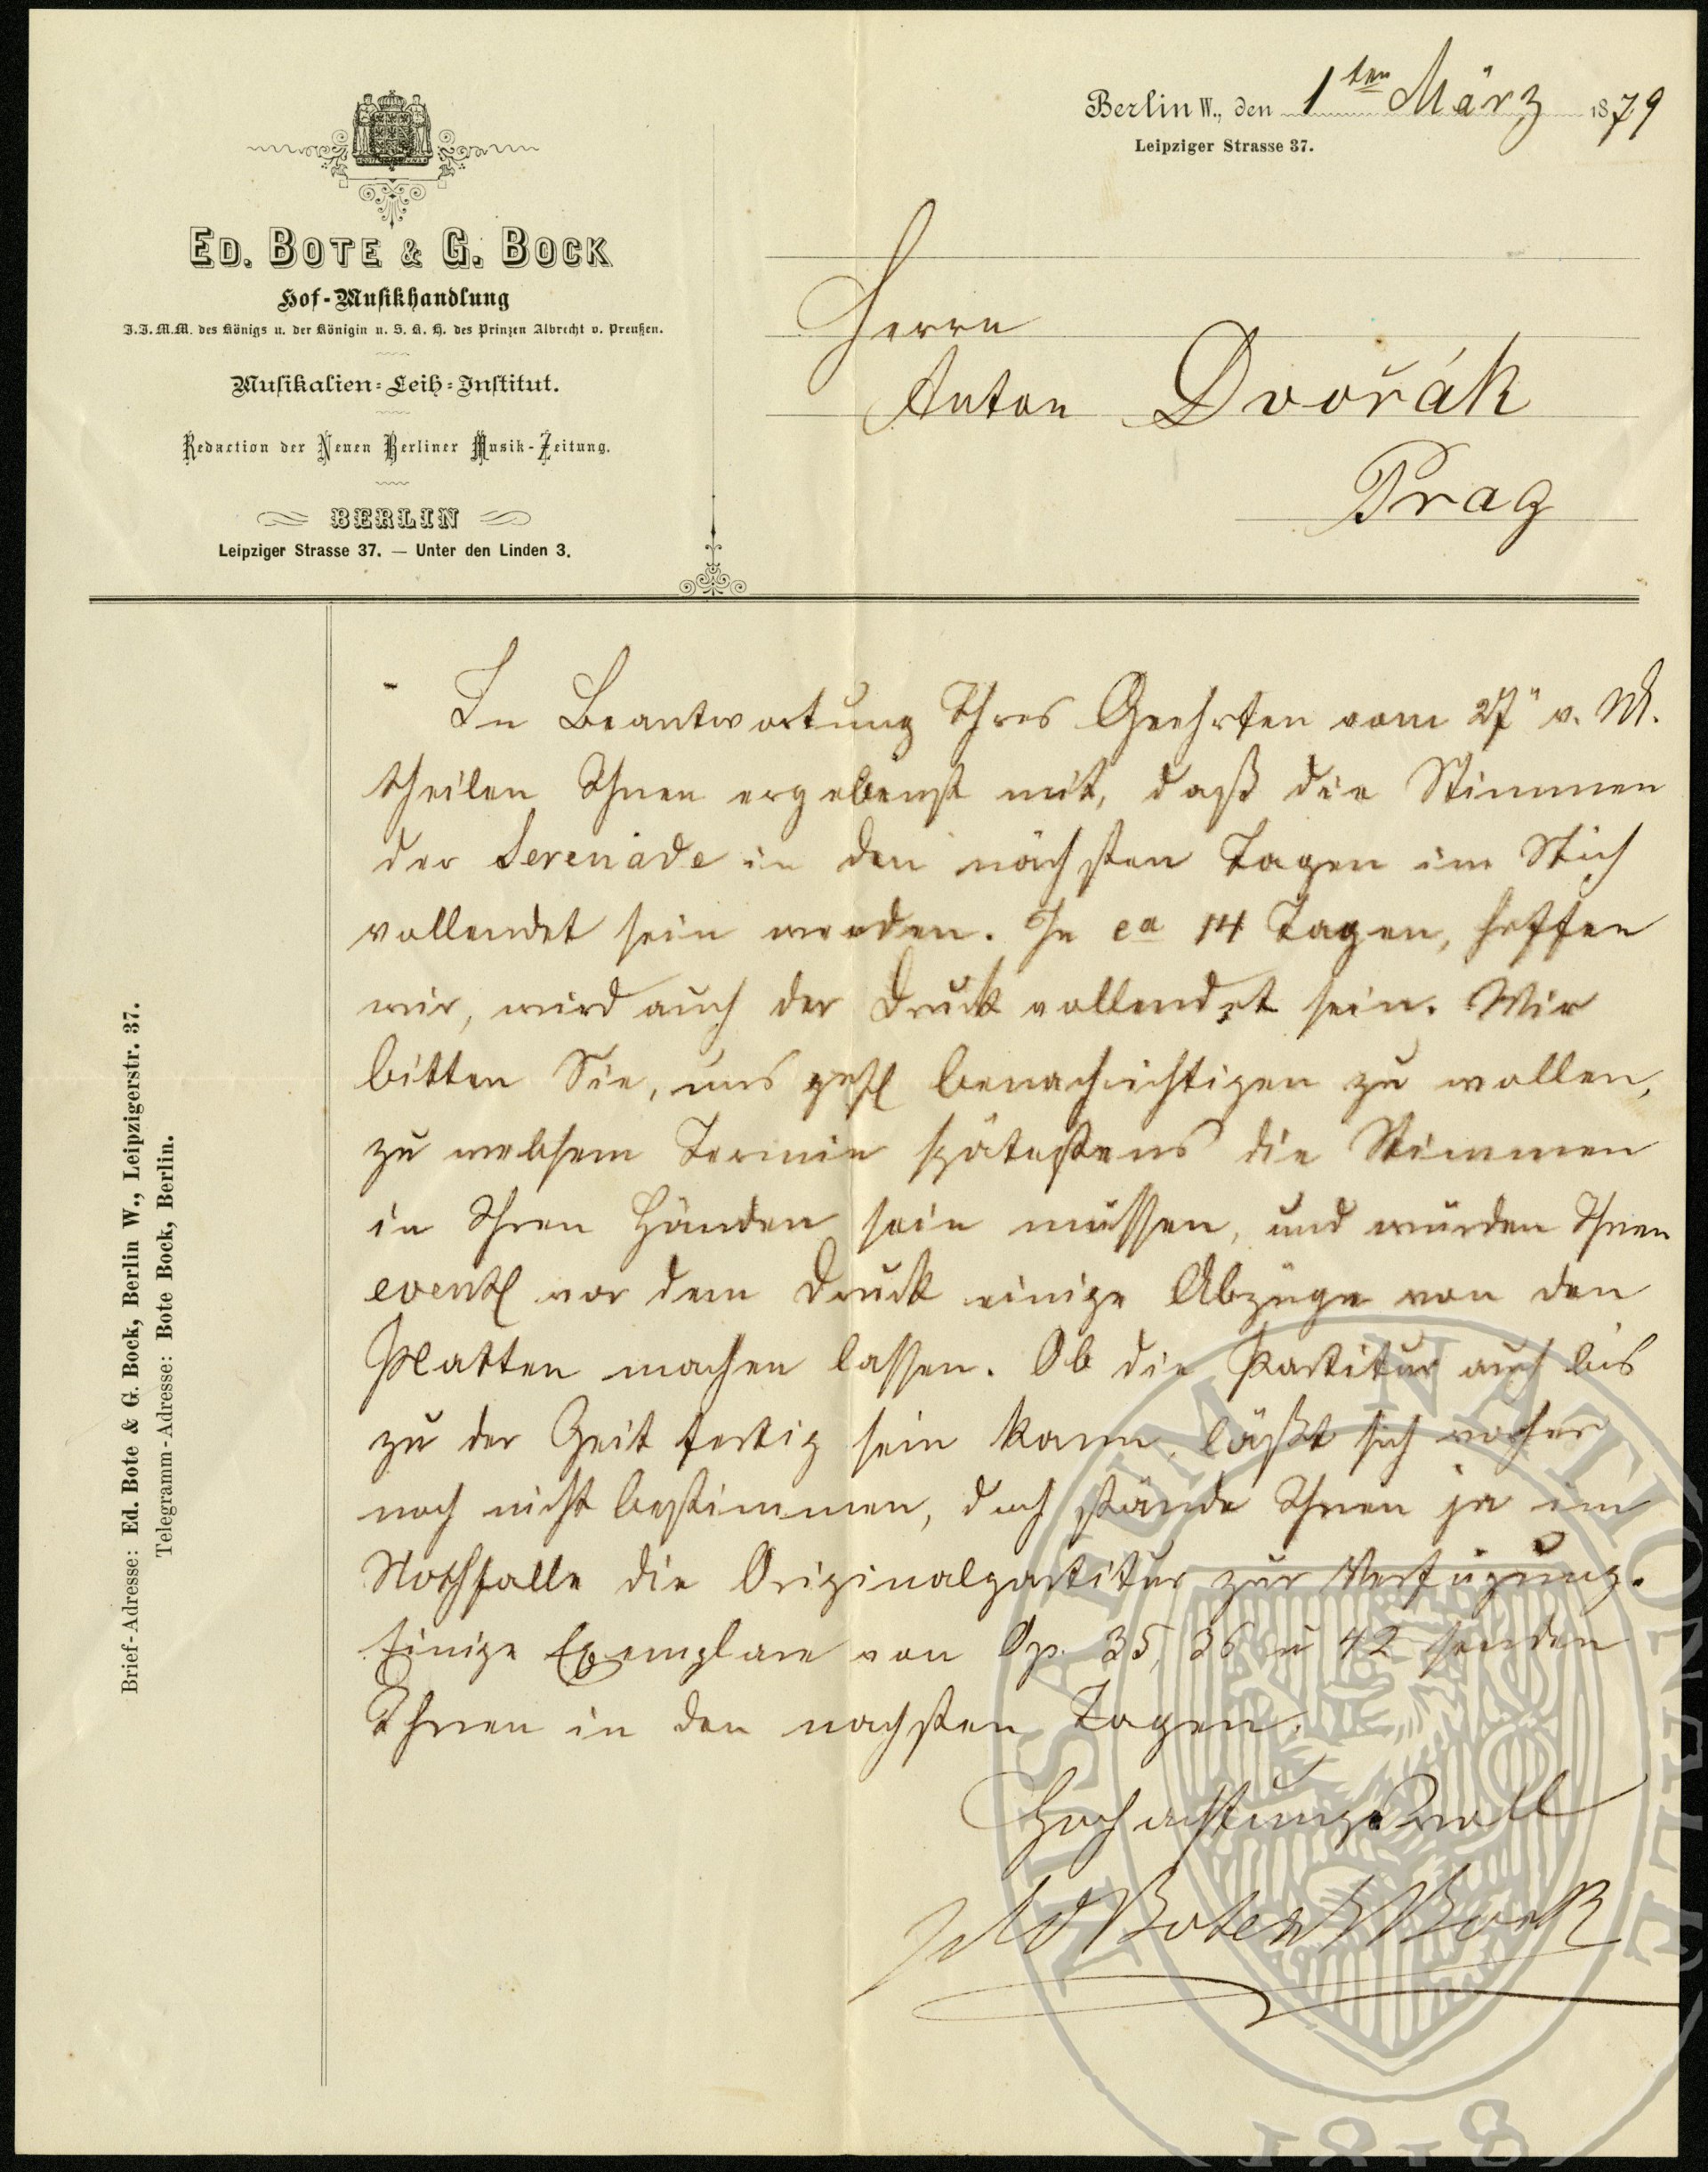 Berlin W., den 1ten März 1879
Leipziger Strasse 37.
ED. BOTE & G. BOCK
Hof-Musikhandlung
J.J.M.M. des Königs u. der Königin u. S. K. H. des Prinzen Albrecht v. Preußen.
Musikalien-Leih-Institut.
Redaction der Neuen Berliner Musik-Zeitung.
BERLIN
Leipziger Strasse 37. — Unter den Linden 3.
Herrn
Anton Dvořák
Prag
In Beantwortung Ihres Geehrten vom 27" v. M.
theilen Ihnen ergebenst mit, daß die Stimmen
der Serenade in den nächsten Tagen im Stich
vollendet sein werden. In ca 14 Tagen, hoffen
wir, wird auch der Druck vollendet sein. Wir
bitten Sie, uns gefl benachrichtigen zu wollen,
zu welchem Termin spätestens die Stimmen
in Ihren Händen sein müssen, und würden Ihnen
eventl vor dem Druck einige Abzüge von den
Platten machen lassen. Ob die Partitur auch bis
zu der Zeit fertig sein kann, läßt sich vorher
noch nicht bestimmen, doch stände Ihnen ja im
Nothfalle die Originalpartitur zur Verfügung.
Einige Exemplare von Op. 35, 36 u 42 senden
Ihnen in den nächsten Tagen.
Hochachtungsvoll
Ed Bote & G Bock
Brief-Adresse: Ed. Bote & G. Bock, Berlin W., Leipzigerstr. 37.
Telegramm-Adresse: Bote Bock, Berlin.
MUSAEUM NATIONALE
1818